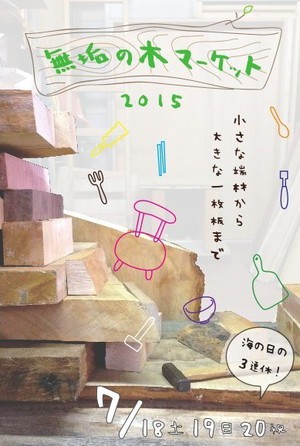 無垢の木マーケット
2015
小さな端材から
大きな一枚板まで
海の日の
3連休！
7/18土19日20祝